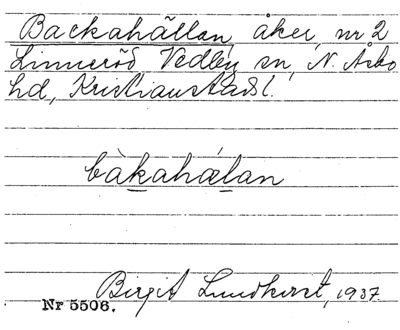 Backahällan, åker, nr 2
Linneröd, Vedby sn, N. Åsbo
hd, Kristianstads l.
bàkahælan
Birgit Lundkvist, 1937.
Nr 5506.